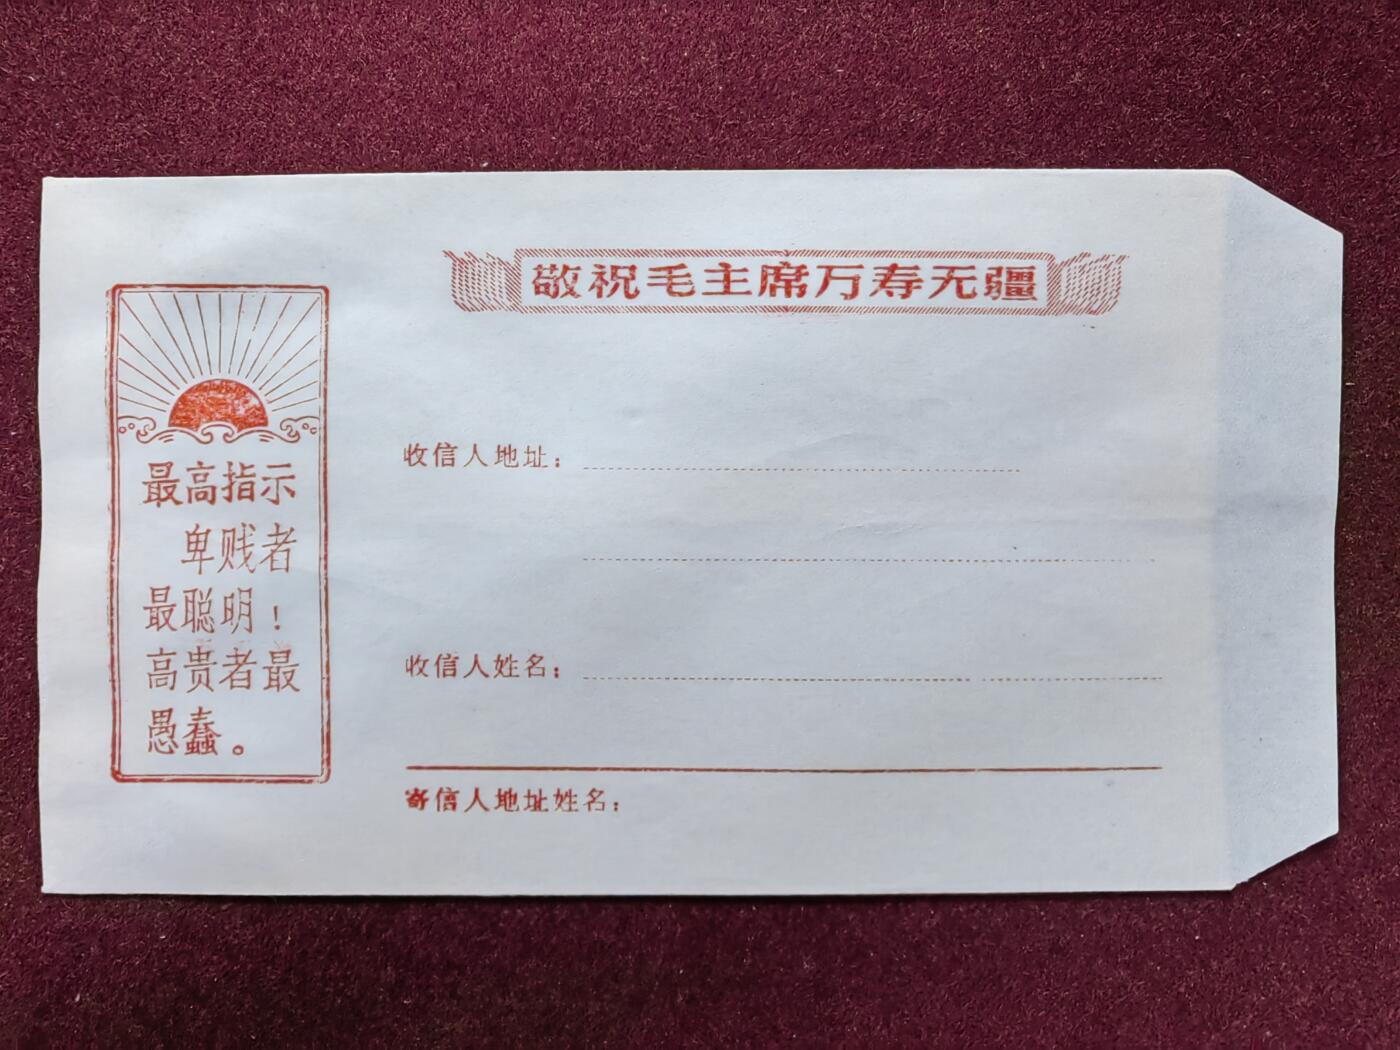 敬祝毛主席万寿无疆
最高指示
卑贱者
最聪明！
高贵者最
愚蠢。
收信人地址：
收信人姓名：
寄信人地址姓名：